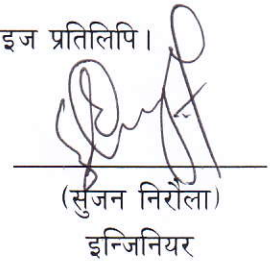 इज प्रतिलिपि।
(सुजन निरौला)
इन्जिनियर